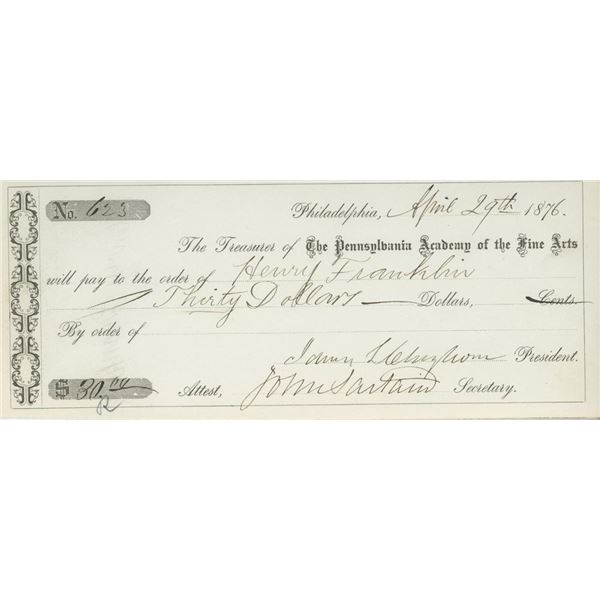 No. 623
Philadelphia, April 29th 1876.
The Treasurer of The Pennsylvania Academy of the Fine Arts
will pay to the order of Henry Franklin
Thirty Dollars — Dollars, Cents.
By order of
President.
$ 30.00 Attest, John Sartain Secretary.